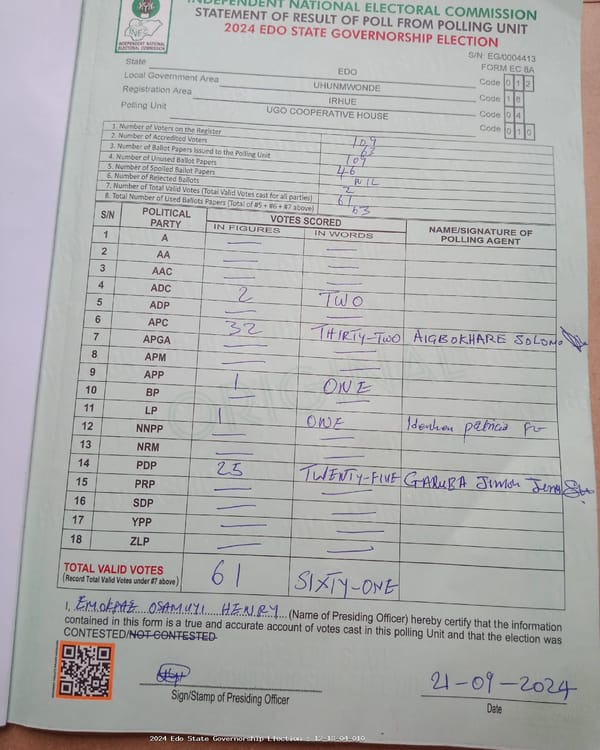 INDEPENDENT NATIONAL ELECTORAL COMMISSION
STATEMENT OF RESULT OF POLL FROM POLLING UNIT
2024 EDO STATE GOVERNORSHIP ELECTION
INEC
INDEPENDENT NATIONAL
ELECTORAL COMMISSION
S/N: EG/0004413
FORM EC 8A
State EDO Code 0 1 2
Local Government Area UHUNMWONDE Code 1 8
Registration Area IRHUE Code 0 4
Polling Unit UGO COOPERATIVE HOUSE Code 0 1 0
1. Number of Voters on the Register 109
2. Number of Accredited Voters 63
3. Number of Ballot Papers Issued to the Polling Unit 109
4. Number of Unused Ballot Papers 46
5. Number of Spoiled Ballot Papers NIL
6. Number of Rejected Ballots 2
7. Number of Total Valid Votes (Total Valid Votes cast for all parties) 61
8. Total Number of Used Ballots Papers (Total of #5 + #6 + #7 above) 63
S/N POLITICAL PARTY VOTES SCORED NAME/SIGNATURE OF POLLING AGENT
IN FIGURES IN WORDS
1 A — —
2 AA — —
3 AAC — —
4 ADC 2 TWO
5 ADP — —
6 APC 32 THIRTY-TWO AIGBOKHARE SOLOMO
7 APGA — —
8 APM — —
9 APP 1 ONE
10 BP — —
11 LP 1 ONE
12 NNPP — —
13 NRM — —
14 PDP 25 TWENTY-FIVE GARUBA
15 PRP — —
16 SDP — —
17 YPP — —
18 ZLP — —
TOTAL VALID VOTES 61 SIXTY-ONE
(Record Total Valid Votes under #7 above)
I, EMOKPAE OSAMUYI HENRY (Name of Presiding Officer) hereby certify that the information
contained in this form is a true and accurate account of votes cast in this polling Unit and that the election was
CONTESTED/NOT CONTESTED
21-09-2024
Sign/Stamp of Presiding Officer Date
ORIGINAL
2024 Edo State Governorship Election : 12-18-04-010